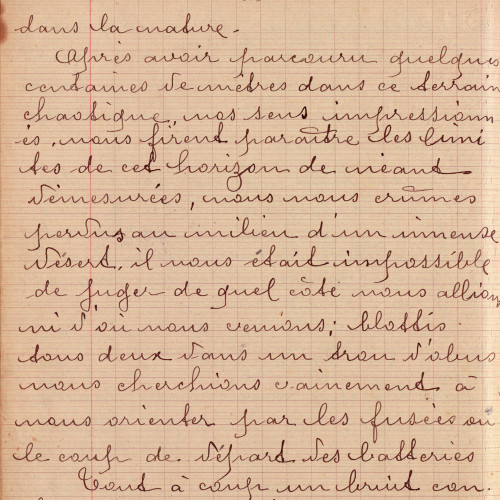 dans la nature.
Après avoir parcouru quelques
centaines de mètres dans ce terrain
chaotique, nos sens impressionn
és, nous firent paraître les limi
tes de cet horizon de néant
démesurées, nous nous crûmes
perdus au milieu d'un immense
désert, il nous était impossible
de juger de quel côté nous allions
ni d'où nous venions; blottis
tous deux dans un trou d'obus
nous cherchions vainement à
nous orienter par les fusées ou
le coup de départ des batteries
Tout à coup un bruit con.